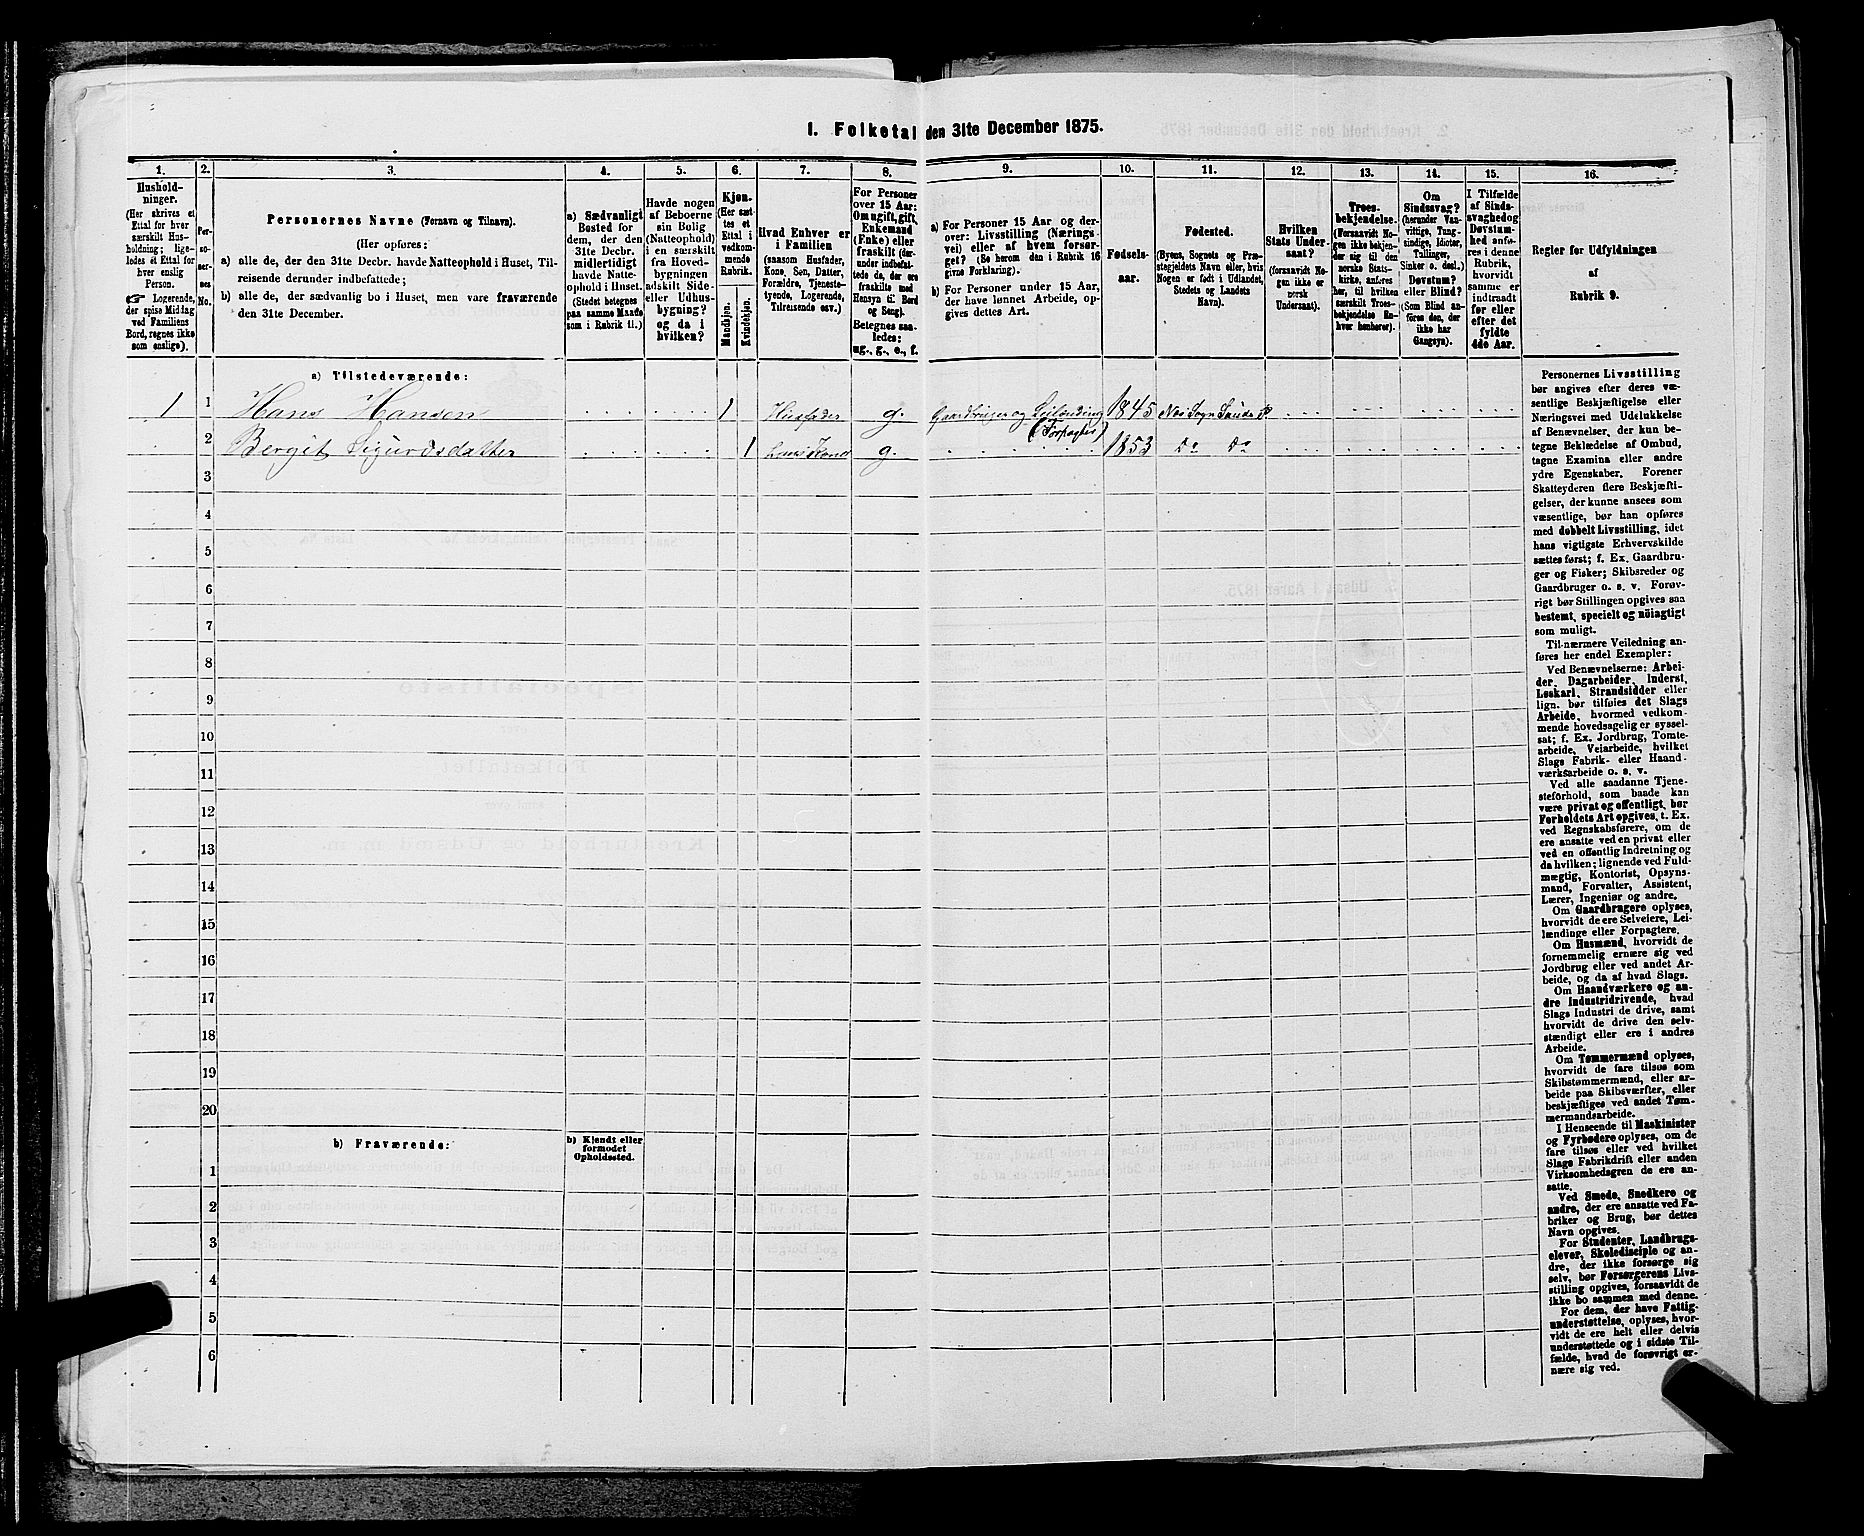 1. Folketal den 31te December 1875.
1. 2. 3. 4. 5. 6. 7. 8. 9. 10. 11. 12. 13. 14. 15. 16.
Hushold-
ninger.
(Her skrives et
Ettal for hver
særskilt Hus-
holdning; lige-
ledes et Ettal for
hver enslig
Person.
☞ Logerende,
der spise Middag
ved Familiens
Bord, regnes ikke
som enslige).
Per-
so-
ner-
nes
No.
Personernes Navne (Fornavn og Tilnavn).
(Her opføres:
a) alle de, der den 31te Decbr. havde Natteophold i Huset, Til-
reisende derunder indbefattede;
b) alle de, der sædvanlig bo i Huset, men vare fraværende
den 31te December.
a) Sædvanligt
Bosted for
dem, der den
31te Decbr.
midlertidigt
havde Natte-
ophold i Huset.
(Stedet betegnes
paa samme Maade
som i Rubrik 11.)
Havde nogen
af Beboerne
sin Bolig
(Natteophold)
i en særskilt
fra Hoved-
bygningen
adskilt Side-
eller Udhus-
bygning?
og da i
hvilken?
Kjøn.
(Her sæt-
tes et
Ettal i
vedkom-
mende
Rubrik.
Mandkjøn.
Kvindekjøn.
Hvad Enhver er
i Familien
(saasom Husfader,
Kone, Søn, Datter,
Forældre, Tjeneste-
tyende, Logerende,
Tilreisende osv.)
For Personer
over 15 Aar:
Om ugift, gift,
Enkemand
(Enke) eller
fraskilt (der-
under indbefat-
tede de, der ere
fraskilte med
Hensyn til Bord
og Seng).
Betegnes saa-
ledes:
ug., g., e., f.
a) For Personer 15 Aar og der-
over: Livsstilling (Nærings-
vei) eller af hvem forsør-
get? (Se herom den i Rubrik 16
givne Forklaring).
b) For Personer under 15 Aar,
der have lønnet Arbeide, op-
gives dettes Art.
Fødsels-
aar.
Fødested.
(Byens, Sognets og Præ-
stegjeldets Navn eller, hvis
Nogen er født i Udlandet,
Stedets og Landets
Navn).
Hvilken
Stats Under-
saat?
(forsaavidt No-
gen ikke er
norsk
Undersaat).
Troes-
bekjendelse.
(Forsaavidt No-
gen ikke bekjen-
der sig til den
norske Stats-
kirke, anføres
her, til hvilken
særskilt Troes-
bekjendelse En-
hver henhører).
Om
Sindssvag?
(herunder Van-
vittige, Tung-
sindige, Idioter,
Tullinger,
Sinker o. desl.)
Døvstum?
eller Blind?
(Som Blind an-
føres den, der
ikke har
Gangsyn).
I Tilfælde
af Sinds-
svaghed og
Døvstum-
hed anfø-
res i denne
Rubrik,
hvorvidt
samme er
indtraadt
før eller
efter det
fyldte
4de Aar.
Regler for Udfyldningen
af
Rubrik 9.
a) Tilstedeværende:
1 1 Hans Hansen 1 Husfader g. Gaardbruger og Leilænding (Forpagter) 1845 Næs Sogn Saude P
2 Bergit Sigurdsdatter 1 hans Kone g. 1853 do do
3
4
5
6
7
8
9
10
11
12
13
14
15
16
17
18
19
20
b) Fraværende:
b) Kjendt eller
formodet
Opholdssted.
1
2
3
4
5
6
Personernes Livsstilling
bør angives efter deres væ-
sentlige Beskjæftigelse eller
Næringsvei med Udelukkelse
af Benævnelser, der kun be-
tegne Beklædelse af Ombud,
tagne Examina eller andre
ydre Egenskaber. Forener
Skatteyderen flere Beskjæfti-
gelser, der kunne ansees som
væsentlige, bør han opføres
med dobbelt Livsstilling, idet
hans vigtigste Erhvervskilde
sættes først; f. Ex. Gaardbru-
ger og Fisker; Skibsreder og
Gaardbruger o. s. v. Forøv-
rigt bør Stillingen opgives saa
bestemt, specielt og nöiagtigt
som muligt.
Til nærmere Veiledning an-
føres her endel Exempler:
Ved Benævnelserne: Arbei-
der, Dagarbeider, Inderst,
Løskarl, Strandsidder eller
lign. bør tilføies det Slags
Arbeide, hvormed vedkom-
mende hovedsagelig er syssel-
sat; f. Ex. Jordbrug, Tomte-
arbeide, Veiarbeide, hvilket
Slags Fabrik- eller Haand-
værksarbeide o. s. v.
Ved alle saadanne Tjene-
steforhold, som baade kan
være privat og offentligt, bør
Forholdets Art opgives, t. Ex.
ved Regnskabsførere, om de
ere ansatte ved en privat eller
ved en offentlig Indretning og
da hvilken; lignende ved Fuld-
mægtig, Kontorist, Opsyns-
mand, Forvalter, Assistent,
Lærer, Ingeniør og andre.
Om Gaardbrugere oplyses,
hvorvidt de ere Selveiere, Lei-
lændinge eller Forpagtere.
Om Husmænd, hvorvidt de
fornemmelig ernære sig ved
Jordbrug eller ved andet Ar-
beide, og da af hvad Slags.
Om Haandværkere og an-
dre Industridrivende, hvad
Slags Industri de drive, samt
hvorvidt de drive den selv-
stændigt eller ere i andres
Arbeide.
Om Tømmermænd oplyses,
hvorvidt de fare tilsøs som
Skibstømmermænd, eller ar-
beide paa Skibsværfter, eller
beskjæftiges ved andet Tøm-
mermandsarbeide.
I Henseende til Maskinister
og Fyrbødere oplyses, om de
fare tilsøs eller ved hvilket
Slags Fabrikdrift eller anden
Virksomhedsgren de ere an-
satte.
Ved Smede, Snedkere og
andre, der ere ansatte ved Fa-
briker og Brug, bør dettes
Navn opgives.
For Studenter, Landbrugs-
elever, Skoledisciple og an-
dre, der ikke forsørge sig
selv, bør Forsørgerens Livs-
stilling opgives, forsaavidt de
ikke bo sammen med denne.
For dem, der have Fattig-
understøttelse, oplyses, hvor-
vidt de ere helt eller delvis
understøttede og i sidste Til-
fælde, hvad de forøvrigt er-
nære sig ved.